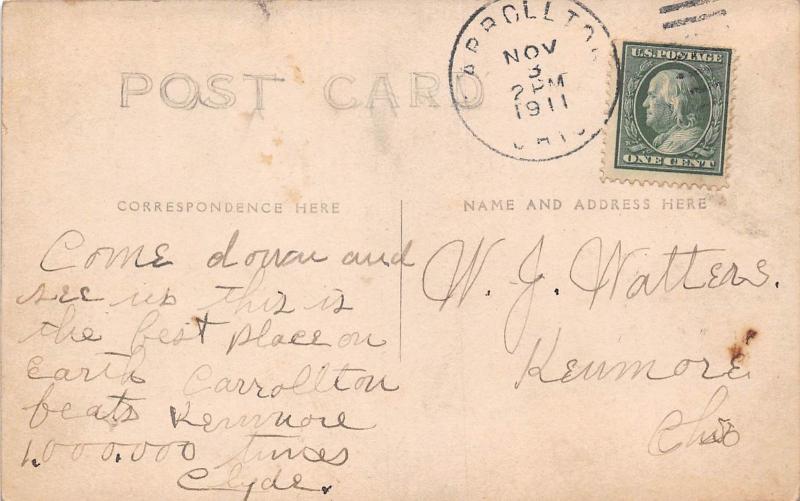 POST CARD
CARROLLTON
NOV
3
2 PM
1911
OHIO
U.S. POSTAGE
ONE CENT
CORRESPONDENCE HERE
NAME AND ADDRESS HERE
Come down and
see us this is
the best place on
Earth Carrollton
beats Kenmore
1,000,000 times
Clyde.
W. J. Watters.
Kenmore
Ohio